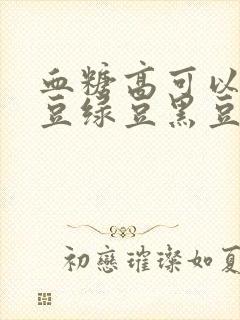 血糖高可以
豆绿豆黑豆
初戀璀璨如夏